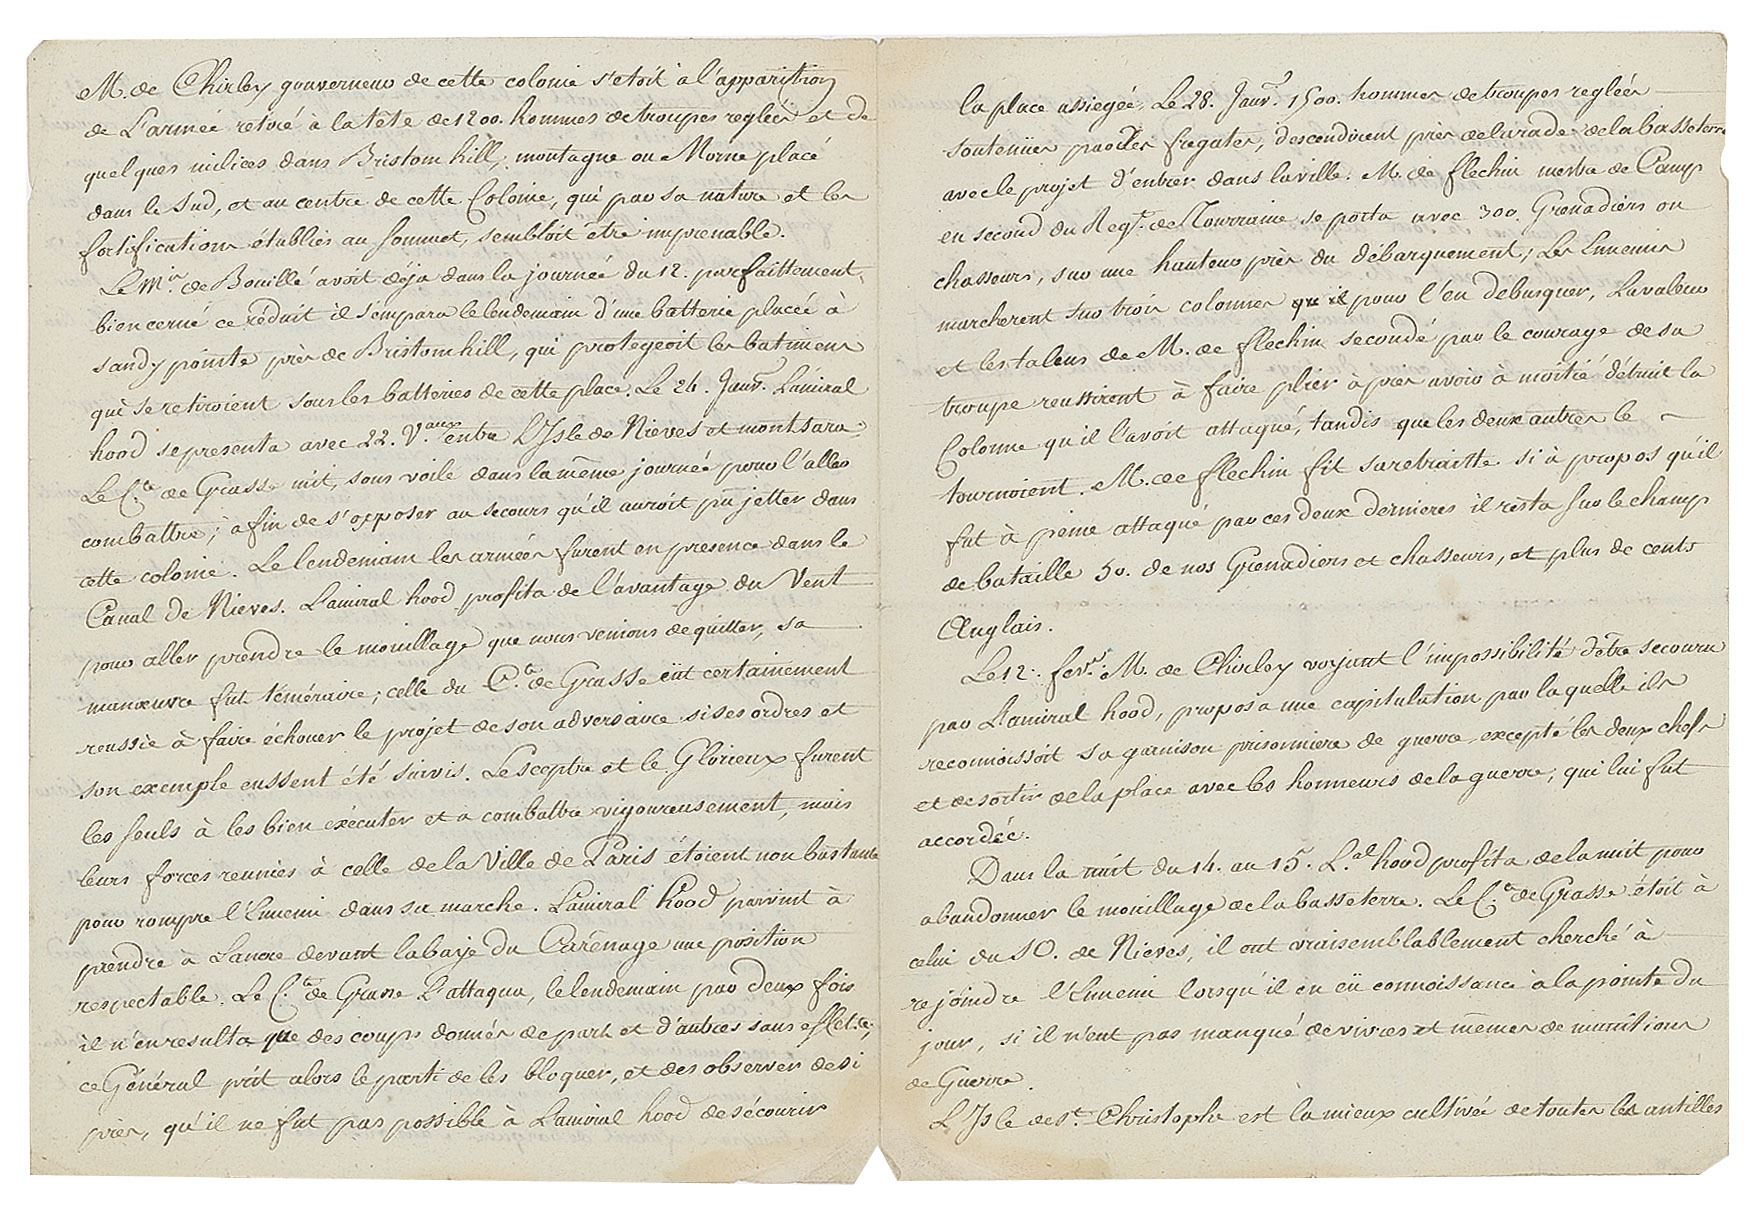 M. de Chirley gouverneur de cette colonie s'etoit à l'apparition
de L'armée retiré à la tête de 1200. hommes de troupes reglées et de
quelques milices dans Bristom hill, montagne ou Morne placé
dans le Sud, et au centre de cette Colonie, qui par sa nature et les
fortifications établies au sommet, sembloit être imprenable.
Le M.is de Bouillé avoit deja dans la journée du 12. parfaittement
bien cerné ce réduit il s'empara le lendemain d'une batterie placée à
sandy pointe près de Bristom hill, qui protegeoit les batimens
qui se retiroient sous les batteries de cette place. Le 24. Janv.r L'amiral
hood se presenta avec 22. V.aux entre L'Isle de Nieves et montsara.
Le C.te de Grasse mit, sous voile dans la même journée pour l'aller
combattre; à fin de s'opposer au secours qu'il auroit pu jetter dans
cette colonie. Le lendemain les armées furent en presence dans le
Canal de Nieves. L'amiral hood profita de l'avantage du Vent
pour aller prendre le mouillage que nous venions de quitter, sa
manœuvre fut téméraire; celle du C.te de Grasse eût certainement
reussie à faire échouer le projet de son adversaire si ses ordres et
son exemple eussent été suivis. Le sceptre et le Glorieux furent
les seuls à les bien exécuter et a combattre vigoureusement, mais
leurs forces reunies à celle de la Ville de Paris étoient non bastante
pour rompre l'Ennemi dans sa marche. L'amiral hood parvint à
prendre à L'ancre devant la baye du Carénage une position
respectable. Le C.te de Grasse L'attaqua, le lendemain par deux fois
il n'en resulta que des coups donnés de part et d'autres sans effet;
ce Général prit alors le parti de les bloquer, et des observer de si
près, qu'il ne fut pas possible à L'amiral hood de sécourir
la place assiegée. Le 28. Janv.r 1500. hommes de troupes reglées
soutenües par des fregates, descendirent près de la rade de la basse terre
avec le projet d'entrer dans la ville. M. de flechin mestre de Camp
en second du Reg.t de Tourraine se porta avec 300. Grenadiers ou
chasseurs, sur une hauteur près du débarquement; Les Ennemis
marcherent sur trois colonnes pour l'en debusquer, La valeur
et les talens de M. de flechin secondé par le courage de sa
troupe reussirent à faire plier à près avoir à moitié détruit la
Colonne qu'il l'avoit attaqué, tandis que les deux autres le
tournoient. M. de flechin fit sa retraitte si à propos qu'il
fut à peine attaqué par ces deux dernieres il resta sur le champ
de bataille 50. de nos Grenadiers et chasseurs, et plus de cents
Anglais.
Le 12. fev.r M. de Chirley voyant l'impossibilité d'etre secouru
par L'amiral hood, proposa une capitulation par laquelle ils
reconnoissoit sa garnison prisonniere de guerre, excepté les deux chefs
et de sortir de la place avec les honneurs de la guerre; qui lui fut
accordée.
Dans la nuit du 14. au 15. L.al hood profita de la nuit pour
abandonner le mouillage de la basse terre. Le C.te de Grasse étoit à
celui du S O. de Nieves, il ont vraisemblablement cherché à
rejoindre l'Ennemi lorsqu'il en eü connoissance à la pointe du
jour, si il n'eut pas manqué de vivres et mêmes de munitions
de Guerre.
L'Isle de S.t Christophe est la mieux cultivée de toutes les antilles